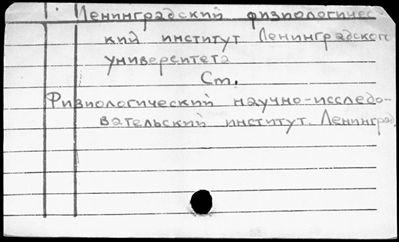 Ленинградский физиологичес-
кий институт Ленинградского
университета
См.
Физиологический научно-исследо-
вательский институт. Ленинград.